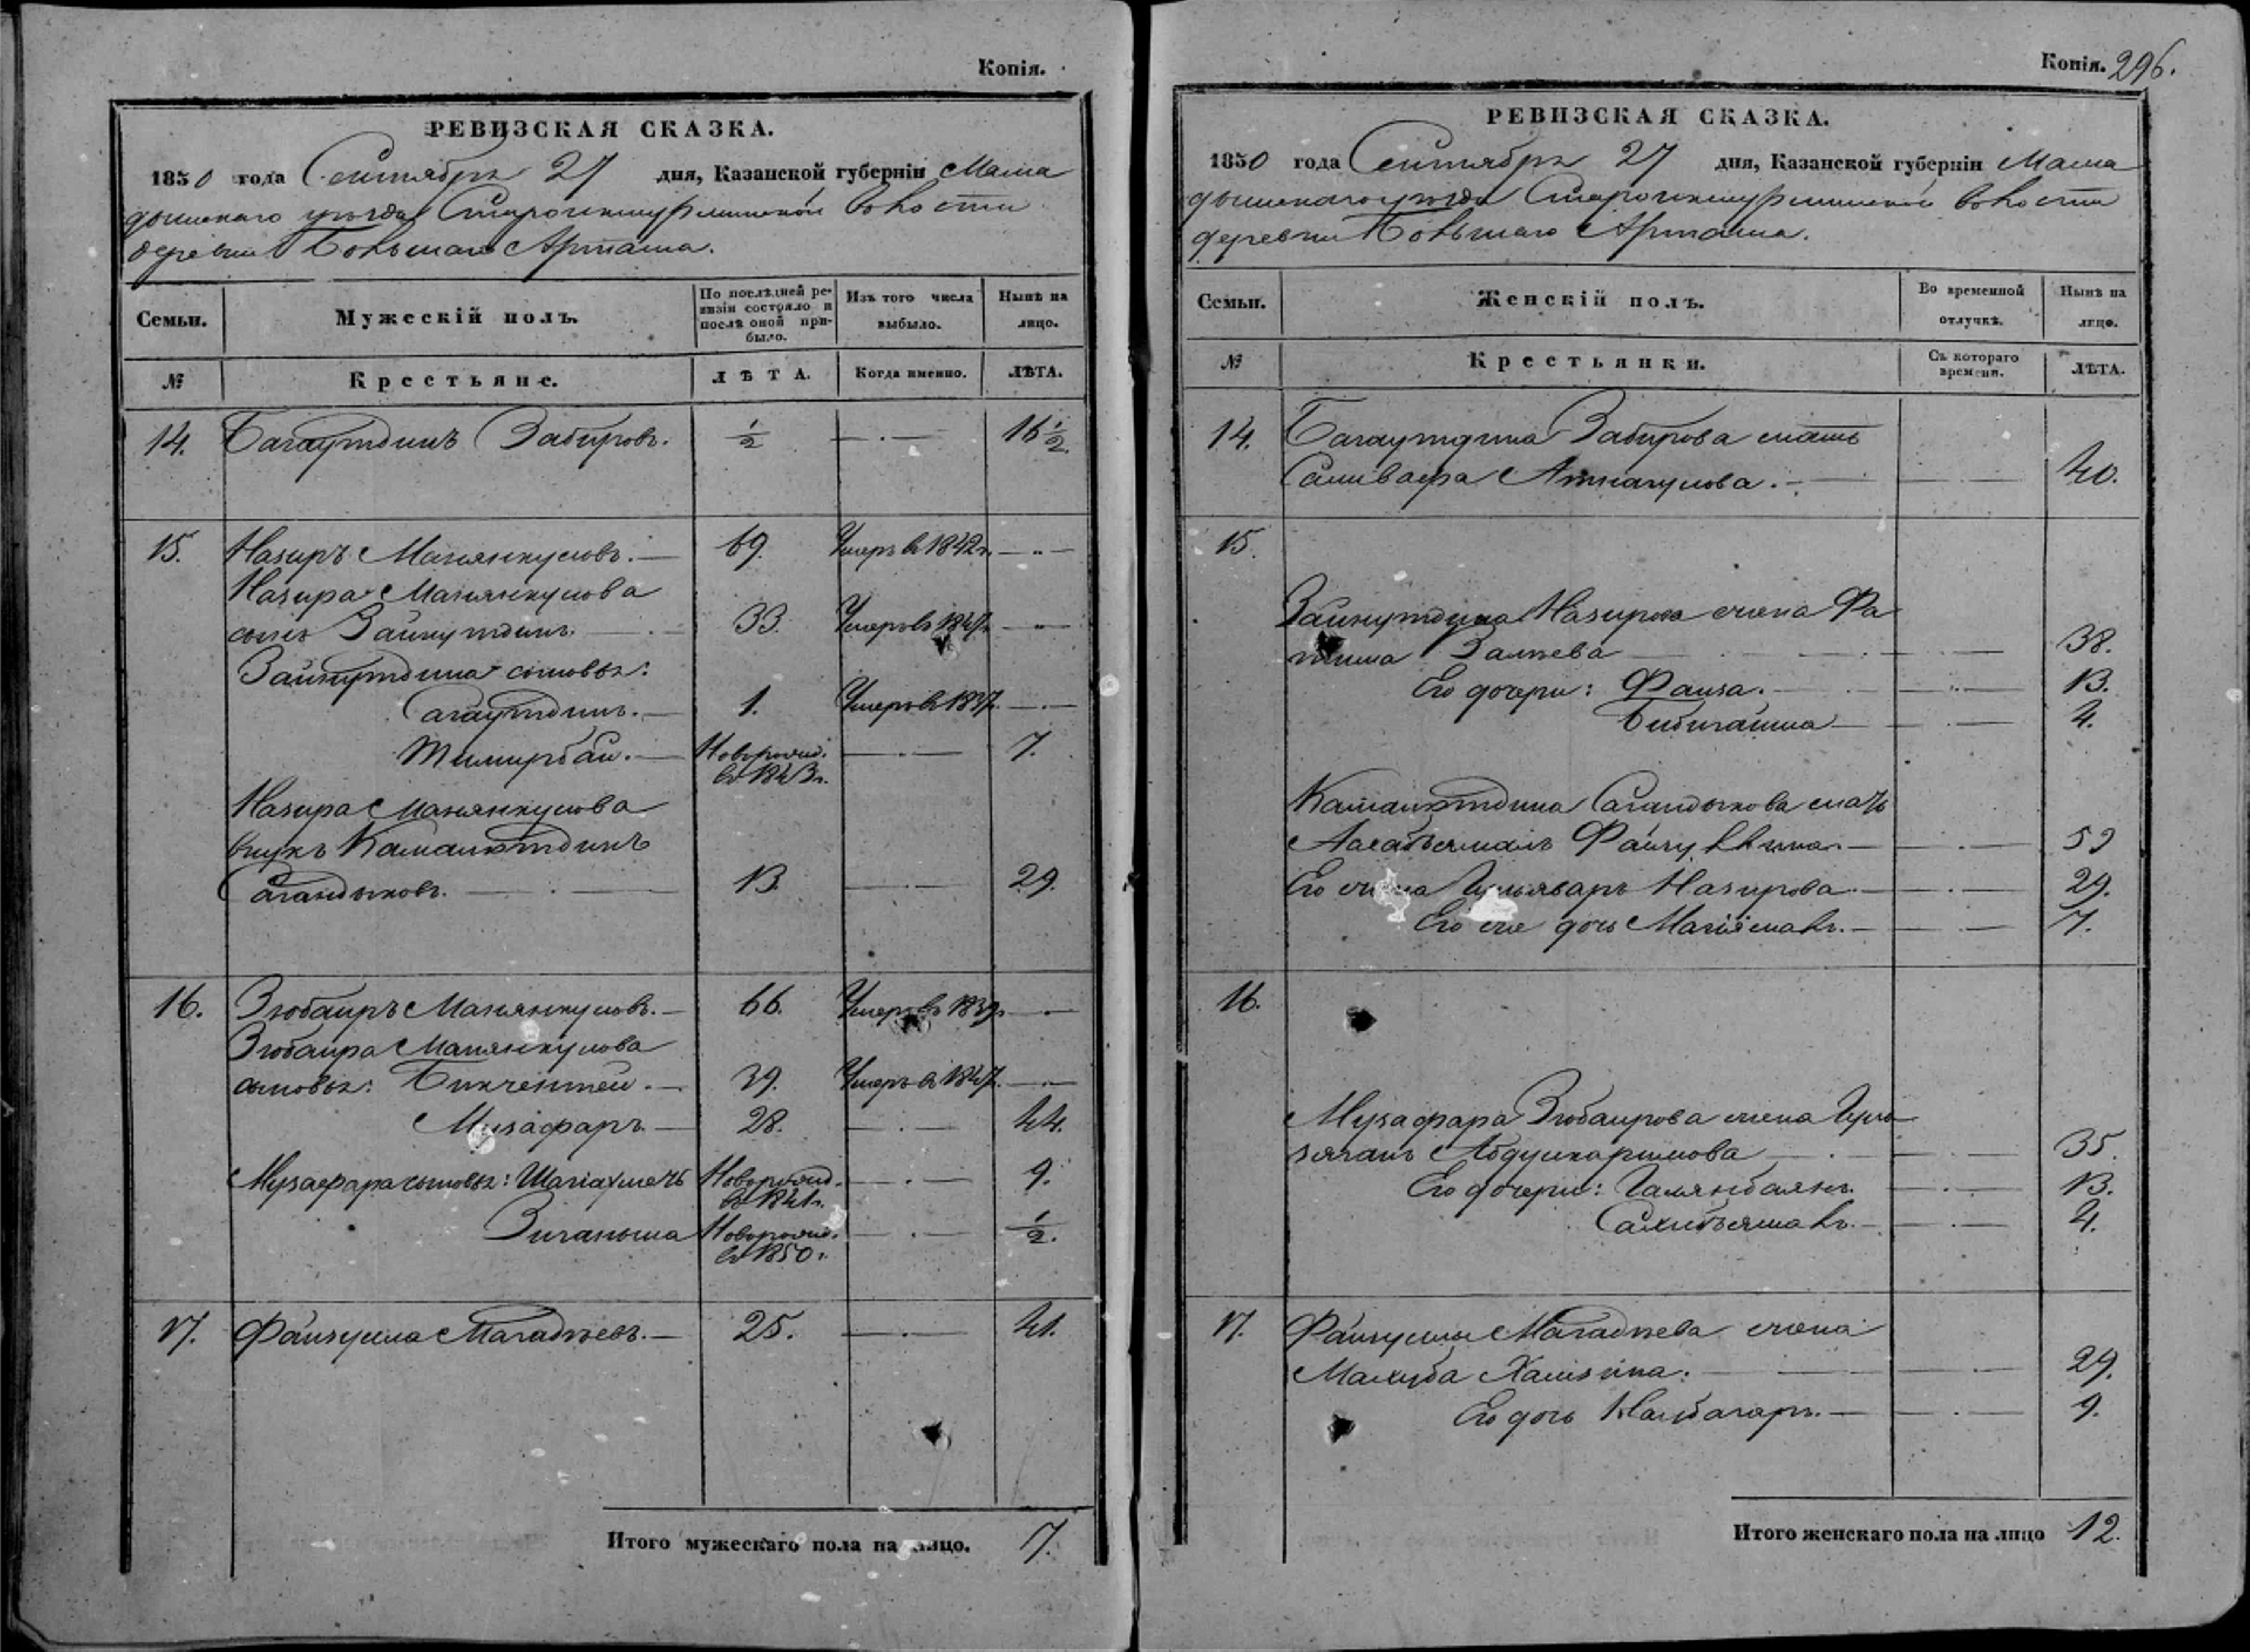 Копія.
РЕВИЗСКАЯ СКАЗКА.
1850 года Сентября 27 дня, Казанской губерніи Мама
дышскаго уѣзда волости
деревни Большаго Арташа.
Семьи. Мужескій полъ. По послѣдней ре-визіи состояло и послѣ оной при-было. Изъ того числа выбыло. Нынѣ на лицо.
№ Крестьяне. ЛѢТА. Когда именно. ЛѢТА.
14. Багаутдинъ Забировъ. 1/2 — . — 16 1/2.
15. Назиръ Маняжкуловъ. — 69. Умеръ въ 1842 г. — „ —
Назира Маняжкулова
сынъ Зайнутдинъ. — 33. Умеръ въ — „ —
Зайнутдина сыновья:
Сагаутдинъ. — 1. Умеръ въ — . —
Тимирбай. — Новорожд. въ 1843 г. — . — 7.
Назира Маняжкулова
внукъ Камалютдинъ
Сагандыковъ. — . — 13. — . — 29.
16. Зюбаиръ Маняжкуловъ. — 66. Умеръ въ 1839 г. — . —
Зюбаира Маняжкулова
сыновья: Бикчентей. — 39. Умеръ въ — . —
Музафаръ — 28. — . — 44.
Музафара сыновья: Шагіахметъ Новорожд. въ 1841 г. — . — 9.
Зиганьша Новорожд. въ 1850 г. — . — 1/2.
17. Файзулла Магадѣевъ. — 25. — . — 41.
Итого мужескаго пола на лицо. 7.
Копія. 296.
РЕВИЗСКАЯ СКАЗКА.
1850 года Сентября 27 дня, Казанской губерніи Мама
дышскаго уѣзда волости
деревни Большаго Арташа.
Семьи. Женскій полъ. Во временной отлучкѣ. Нынѣ на лицо.
№ Крестьянки. Съ котораго времени. ЛѢТА.
14. Багаутдина Забирова мать
Аитнагулова. — — . — 40.
15.
Зайнутдина Назирова жена Фа
тима Валѣева — . — 38.
Его дочери: Фаиза. — — „ — 13.
Бибигайша — — . — 4.
Камалютдина Сагандыкова мать
Файзуллина. — — . — 59
Его жена Назирова. — — . — 29.
Его же дочь — — . — 7.
16.
Музафара Зюбаирова жена Гуль
Абдулкаримова — . — 35.
Его дочери: Галянбаянъ. — . — 13.
Сахибзямалъ. — — . — 4.
17. Файзуллы Магадѣева жена
Махуба Хамзина. — — . — 29.
Его дочь — — . — 9.
Итого женскаго пола на лицо 12.